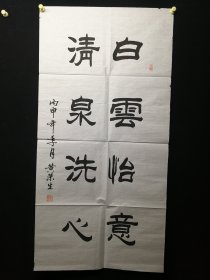 白雲怡意
清泉洗心
丙申年季月黄荣生